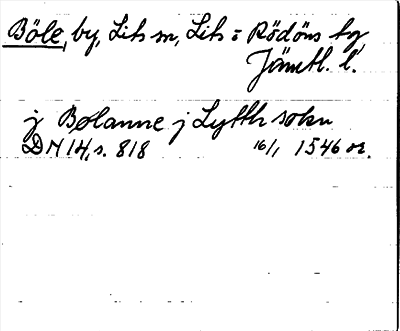 Böle, by, Lits sn, Lits o Rödöns tg
Jämtl. l.
j Bølanne j Lytth sokn
DN 14, s. 818 16/1 1546 or.